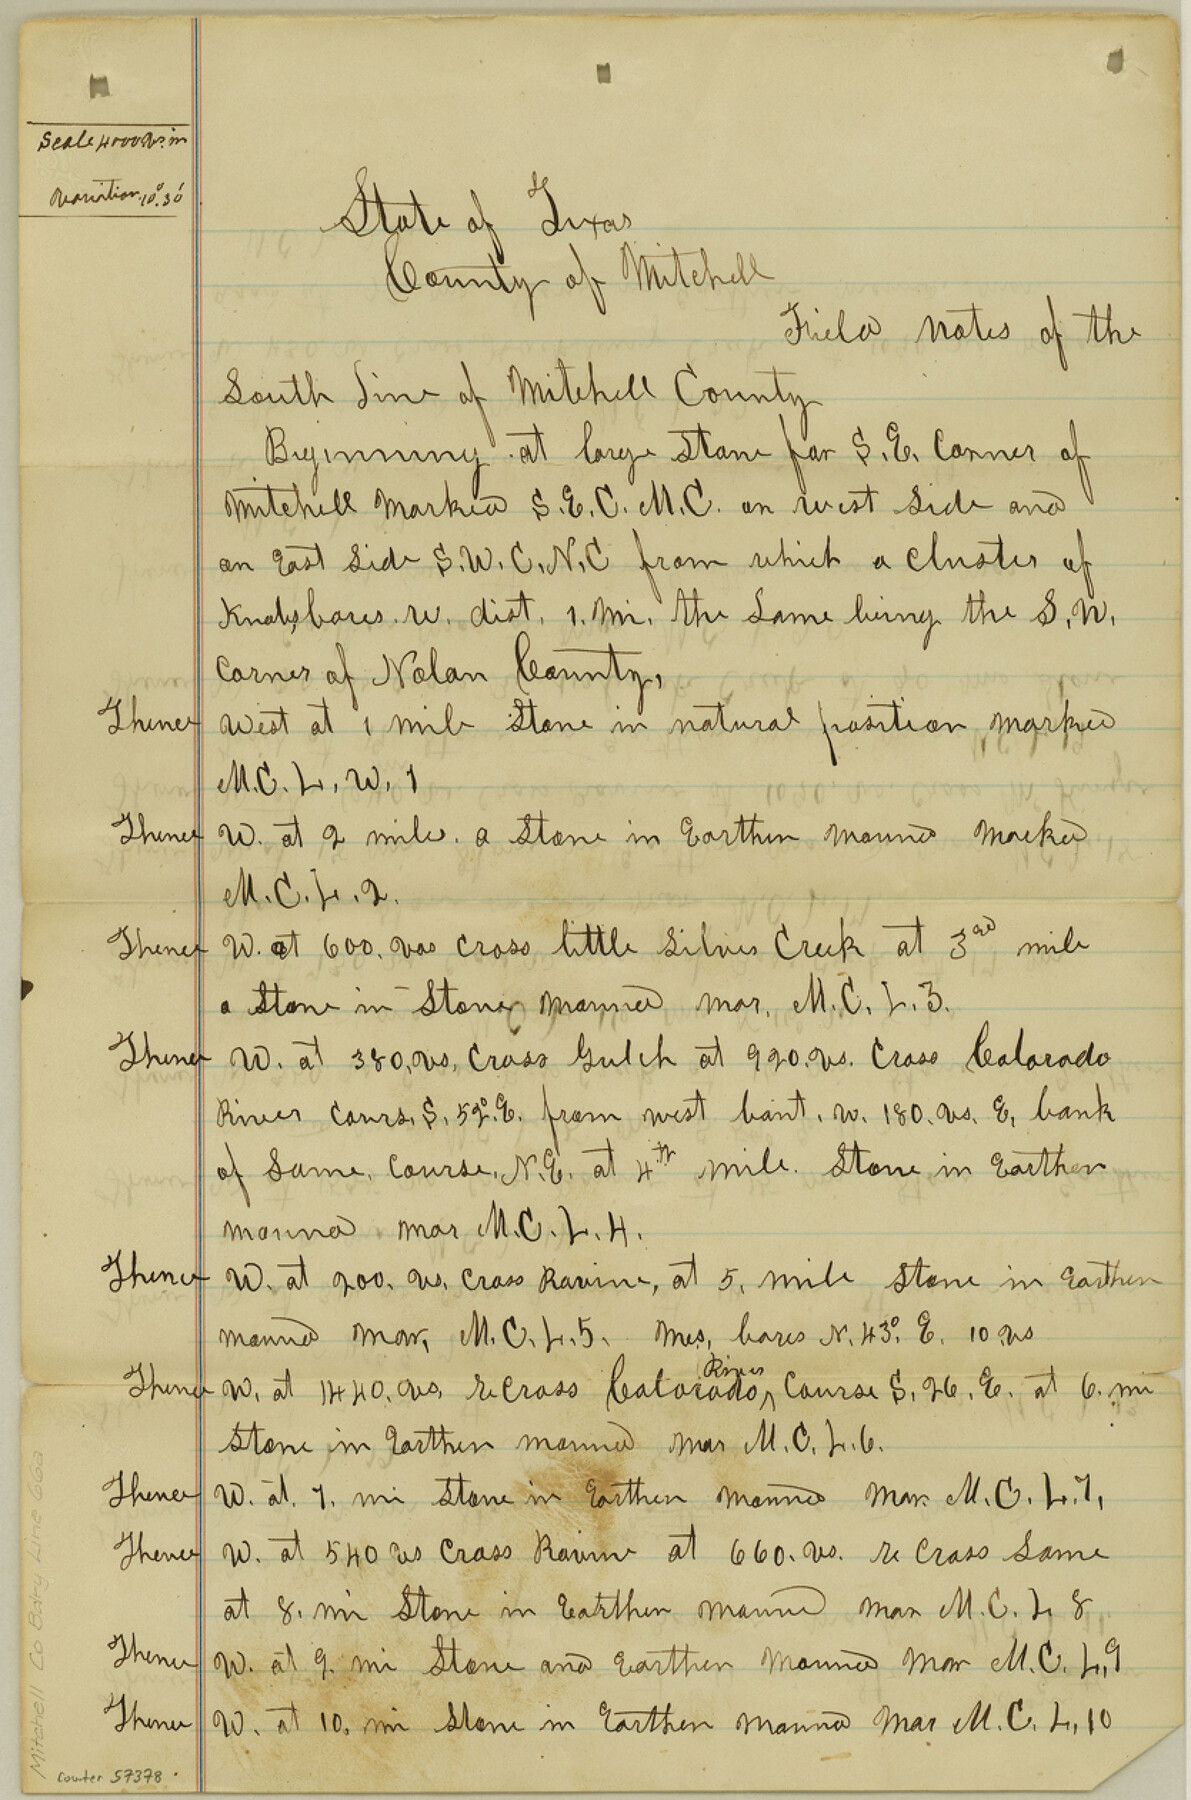 Scale 4000 Vs. in
Variation 10°.30'
State of Texas
County of Mitchell
Field notes of the
South Line of Mitchell County
Beginning at large Stone for S.E. Corner of
Mitchell Marked S.E.C.M.C. on west Side and
on East Side S.W.C.N.C from which a cluster of
Knobs bares. w. dist. 1. Mi. the Same being the S.W.
Corner of Nolan County,
Thence West at 1 mile Stone in natural position marked
M.C.L.W.1
Thence W. at 2 mile. a Stone in Earthen Mound Marked
M.C.L.2.
Thence W. at 600. vas cross little Silver Creek at 3rd mile
a Stone in Stone Mound mar. M.C.L.3.
Thence W. at 380. vs. Cross Gulch at 920. vs. Cross Colorado
River Cours. S. 52°. E. from west w. 180. vs. E. bank
of Same. Course. N.E. at 4th mile. Stone in Earthen
mound mar M.C.L.4.
Thence W. at 200. vs. Cross Ravine, at 5. mile Stone in Earthen
mound Mar. M.C.L.5. Mes. bares N. 43°. E. 10 vs
Thence W. at 1440. vs. reCross Colorado, River Course S. 26. E. at 6. mi
Stone in Earthen mound mar M.C.L.6.
Thence W. at. 7. mi Stone in Earthen Mound Mar. M.C.L.7,
Thence W. at 540 vs Cross Ravine at 660. vs. re Cross Same
at 8. mi Stone in Earthen mound mar M.C.L 8
Thence W. at 9. mi Stone and Earthen Mound Mar M.C.L.9
Thence W. at 10. mi Stone in Earthen mound Mar M.C.L.10
Mitchell Co Bdry Line 66a
counter 57378.